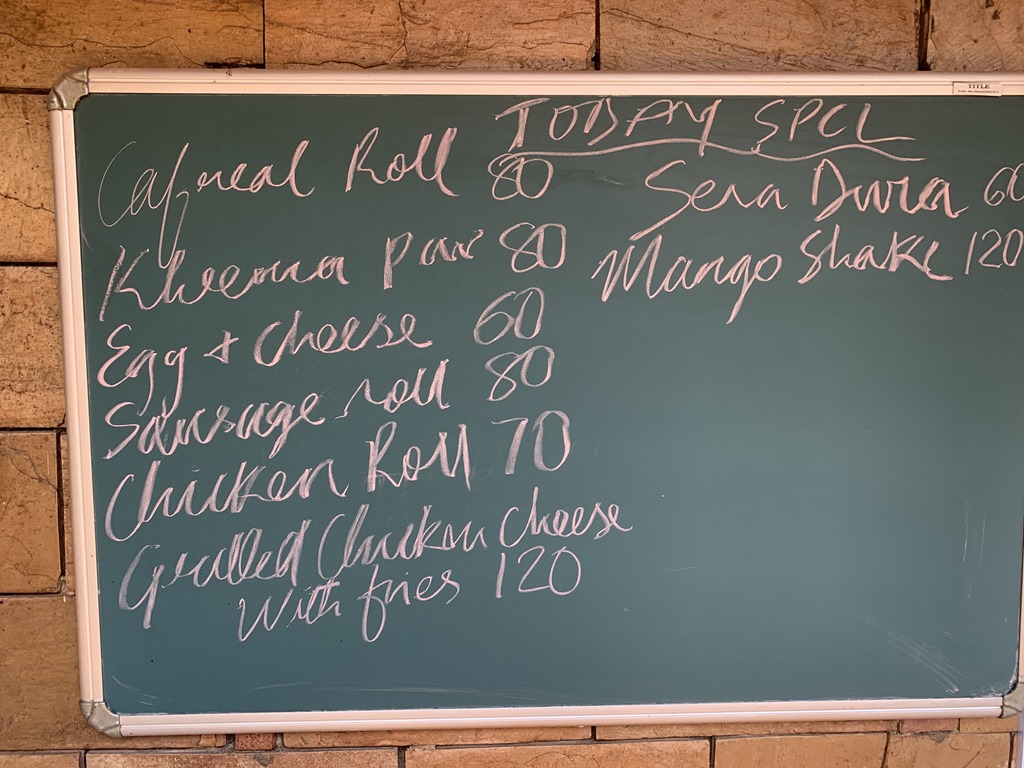 TODAY SPCL
Cafreal Roll 80
Kheema pav 80
Egg + cheese 60
Sausage roll 80
Chicken Roll 70
Grilled Chicken cheese
With fries 120
Sera Dura 60
Mango Shake 120
TITLE